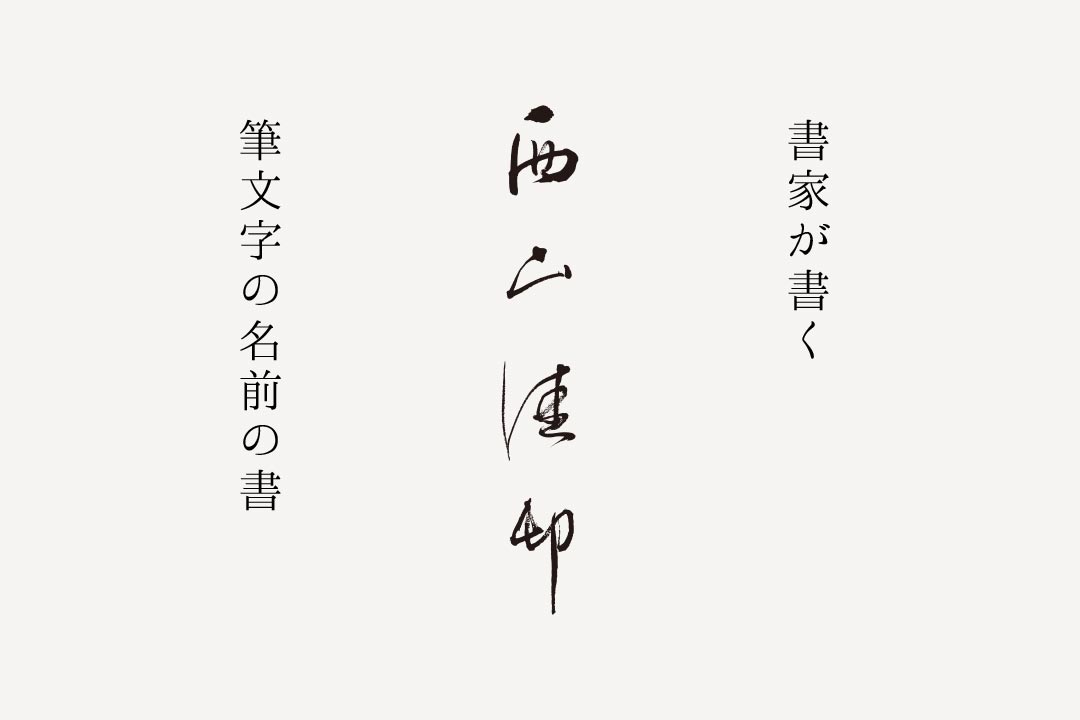 書家が書く
西山佳邨
筆文字の名前の書